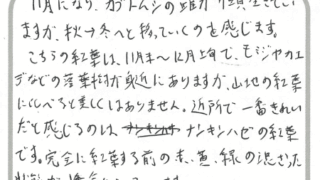 11月になり、カブトムシの雌が1頭生きてい
ますが、秋→冬へと移っていくのを感じます。
こちらの紅葉は、11月末〜12月上旬で、モミジやカエ
デなどの落葉樹が身近にありますが、山地の紅葉
にくらべると美しくはありません。近所で一番きれい
だと感じるのは、ナンキンハゼの紅葉
です。完全に紅葉する前の赤、黄、緑の混ざった